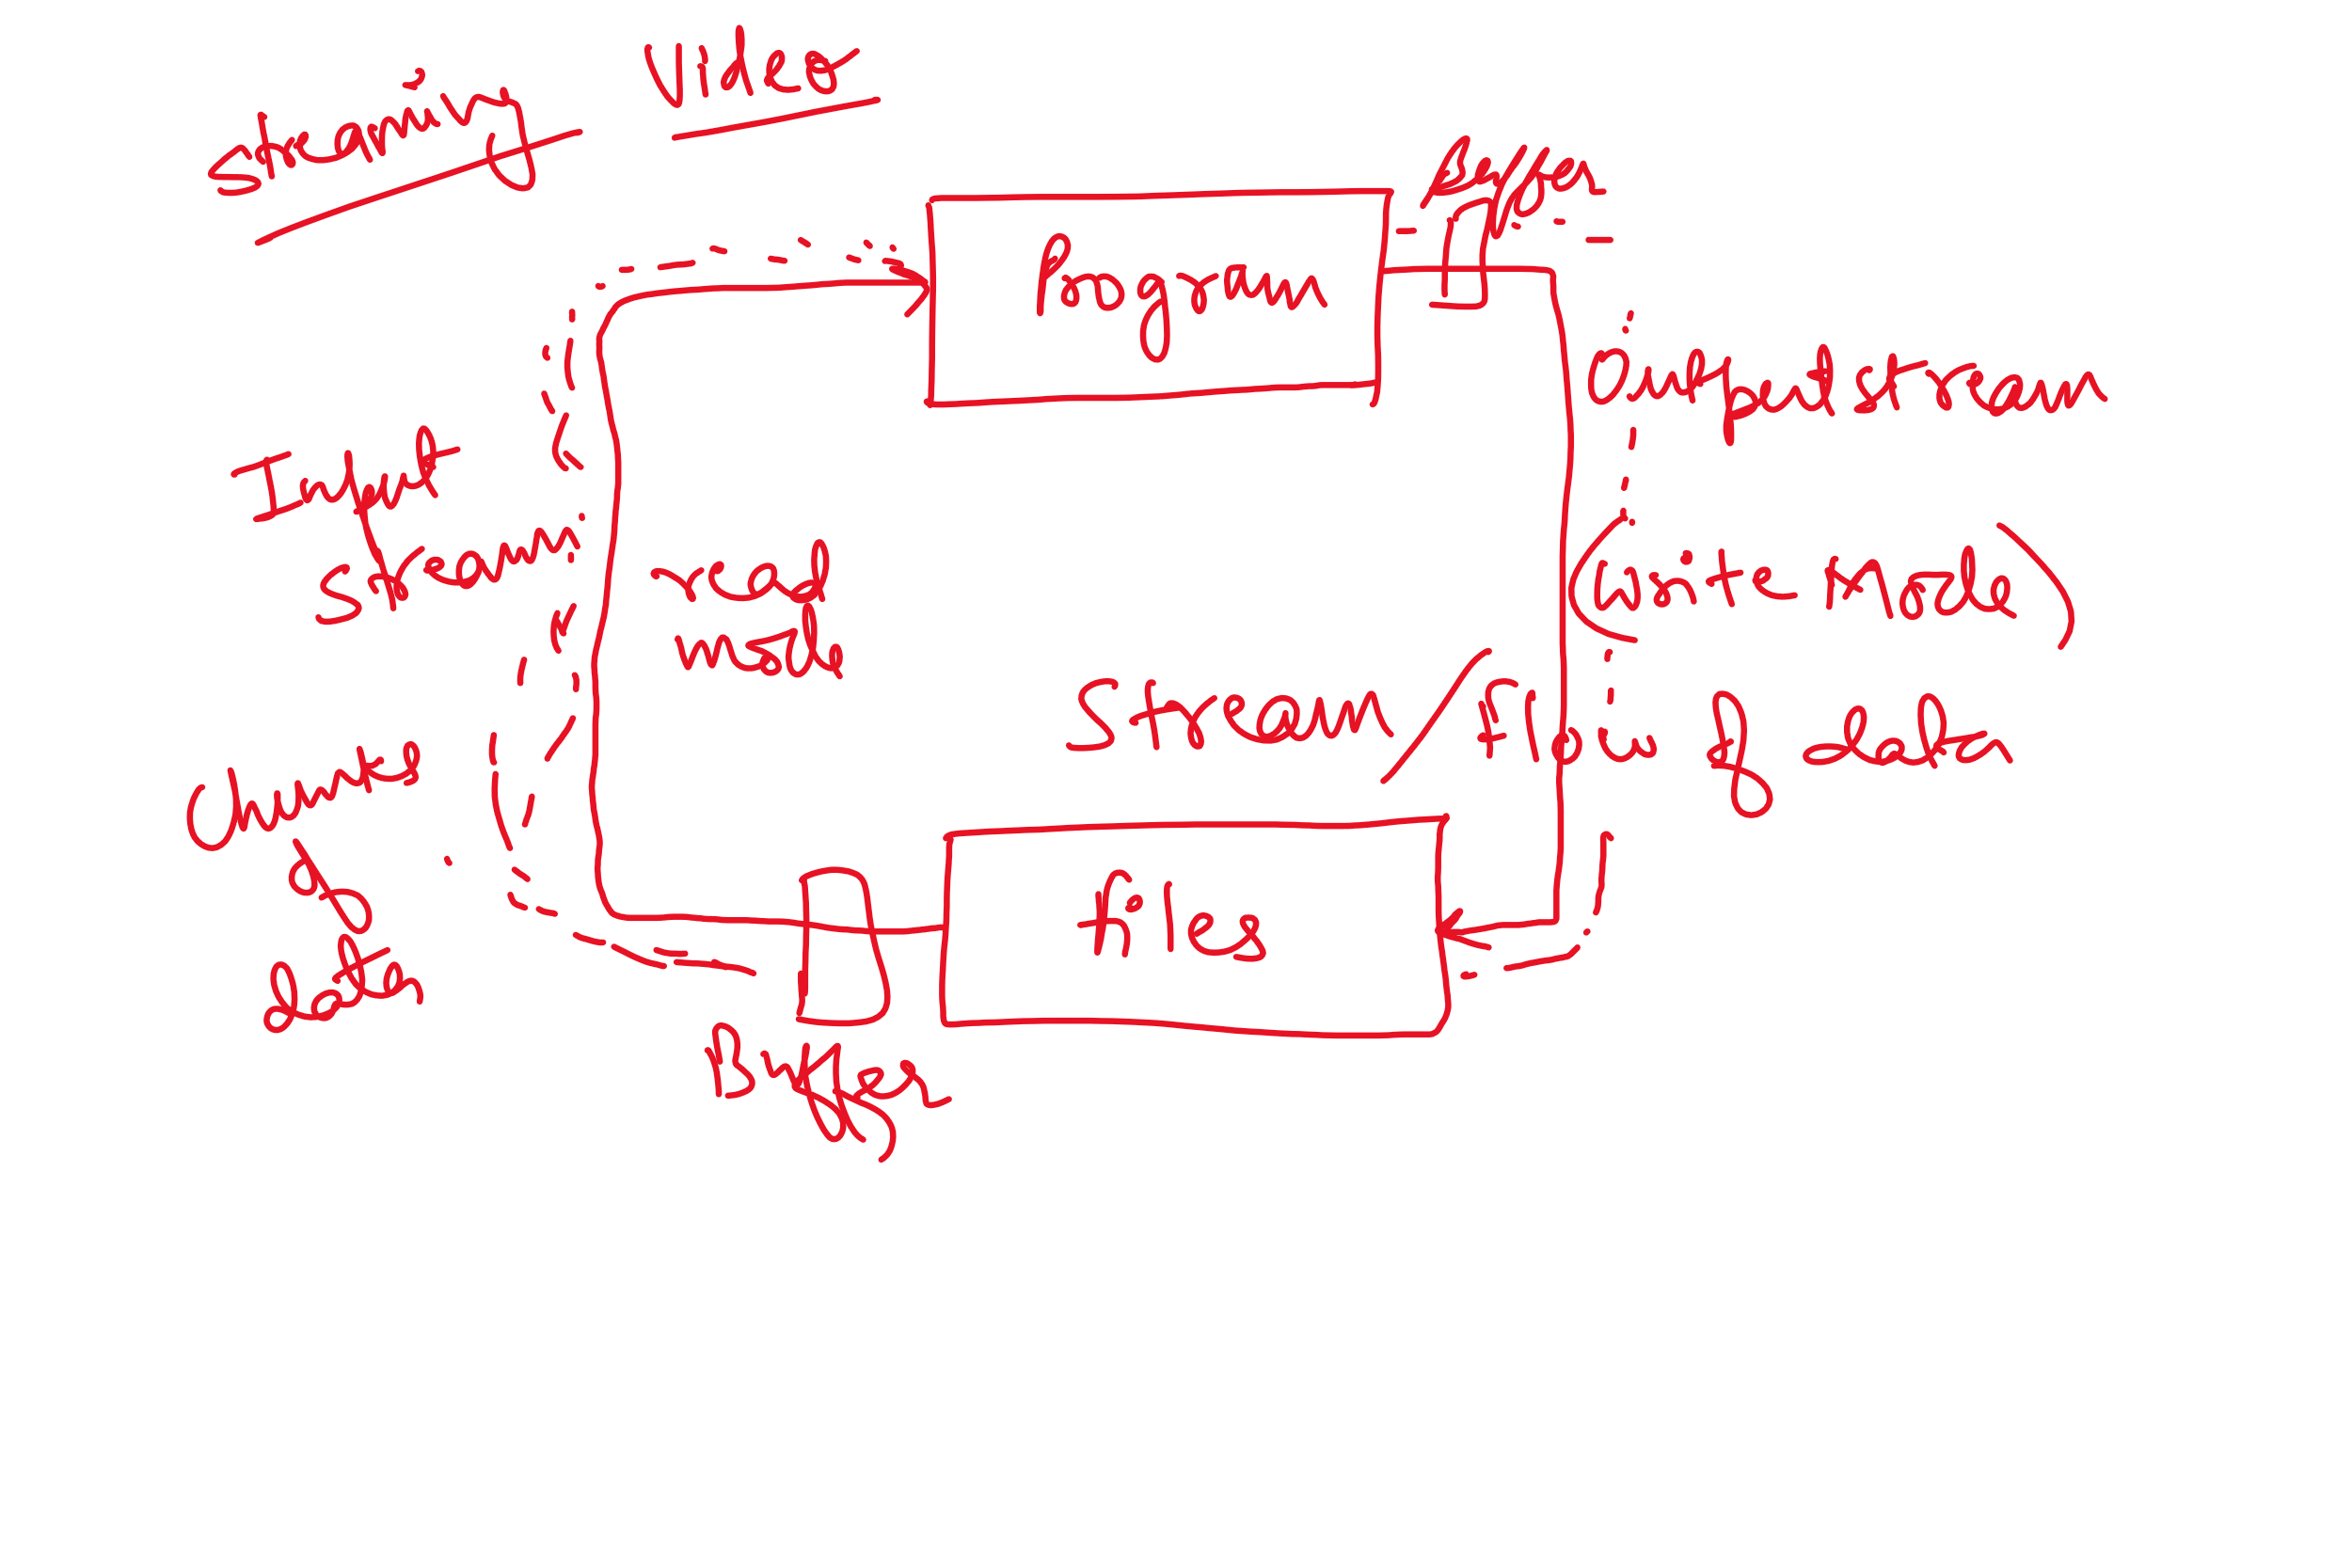 Streaming Video
Buffer
Program
Input
Stream
Output stream
(write mode)
read
mode
Stream / flow of data
Chunks
of
data
Files
Buffer